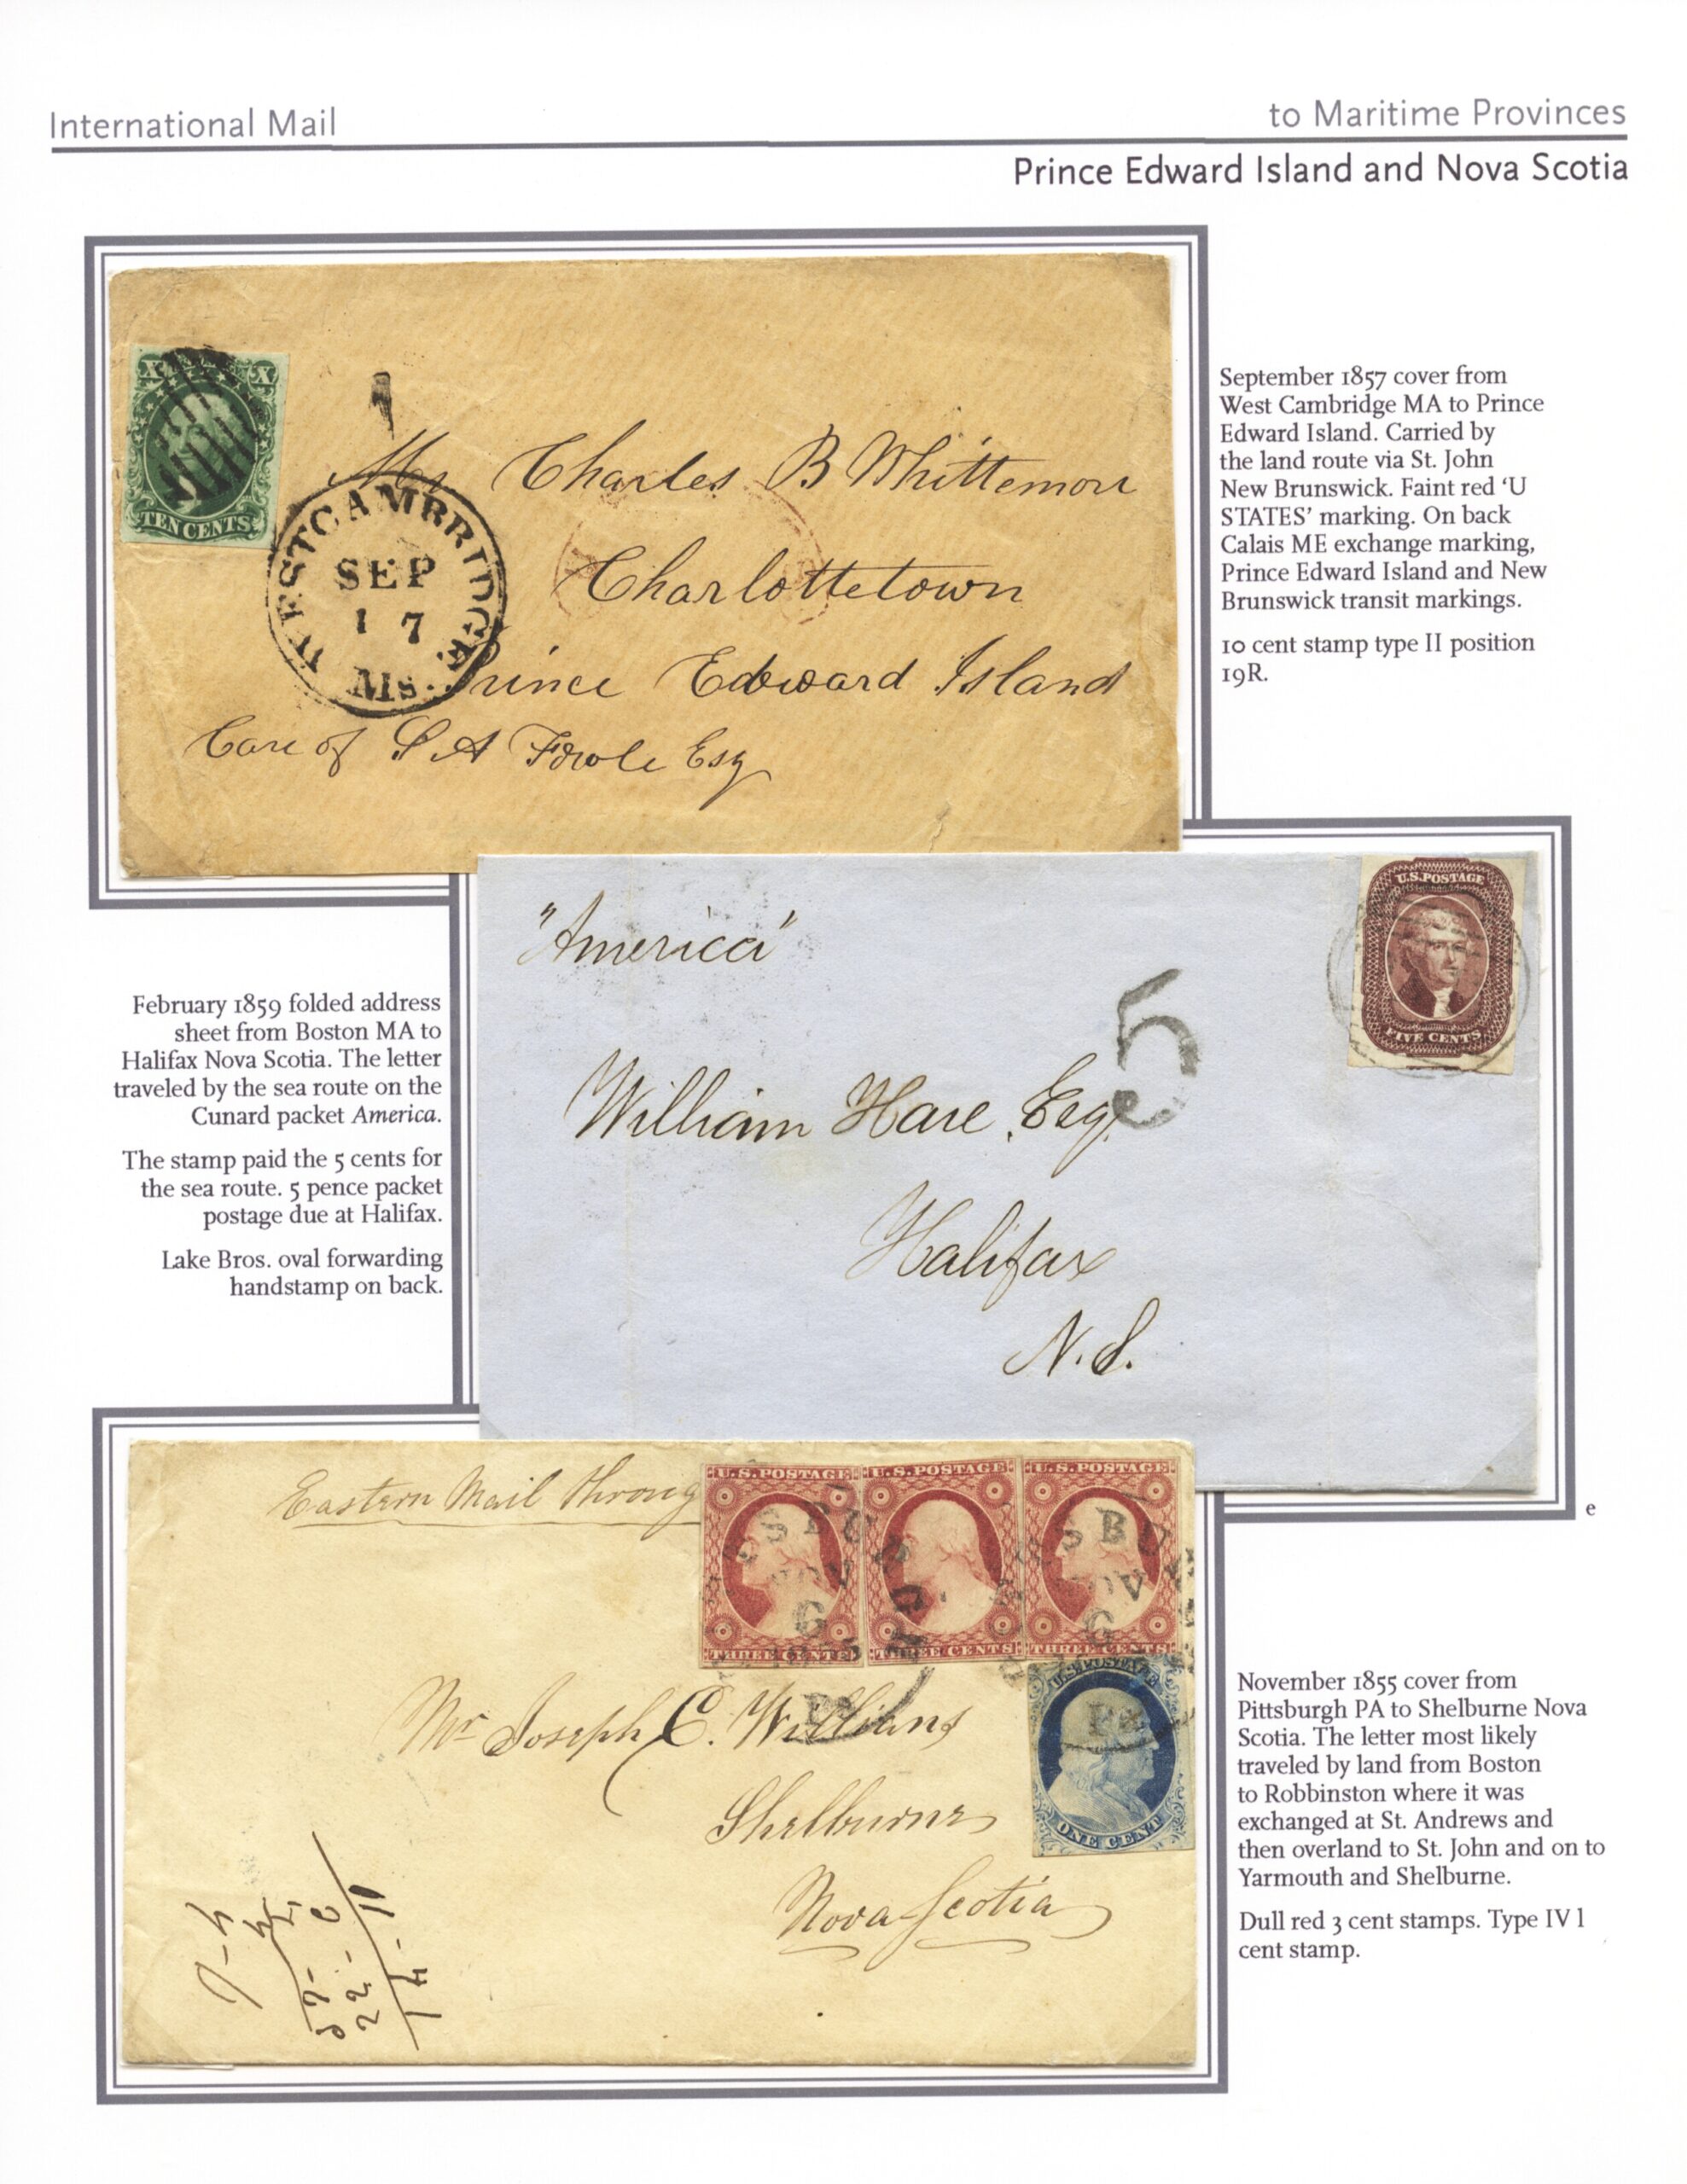 International Mail
to Maritime Provinces
Prince Edward Island and Nova Scotia
X X
TEN CENTS
Mr Charles B Whittemore
Charlottetown
Prince Edward Island
Care of S A Fowle Esq
WEST CAMBRIDGE
SEP
17
Ms.
September 1857 cover from
West Cambridge MA to Prince
Edward Island. Carried by
the land route via St. John
New Brunswick. Faint red ‘U
STATES’ marking. On back
Calais ME exchange marking,
Prince Edward Island and New
Brunswick transit markings.
10 cent stamp type II position
19R.
"America"
U.S. POSTAGE
FIVE CENTS
5
William Hare, Esq.
Halifax
N.S.
February 1859 folded address
sheet from Boston MA to
Halifax Nova Scotia. The letter
traveled by the sea route on the
Cunard packet America.
The stamp paid the 5 cents for
the sea route. 5 pence packet
postage due at Halifax.
Lake Bros. oval forwarding
handstamp on back.
e
Eastern Mail throug
U.S. POSTAGE U.S. POSTAGE U.S. POSTAGE
THREE CENTS THREE CENTS THREE CENTS
U.S. POSTAGE
ONE CENT
Mr Joseph C. Williams
Shelburne
Nova Scotia
November 1855 cover from
Pittsburgh PA to Shelburne Nova
Scotia. The letter most likely
traveled by land from Boston
to Robbinston where it was
exchanged at St. Andrews and
then overland to St. John and on to
Yarmouth and Shelburne.
Dull red 3 cent stamps. Type IV 1
cent stamp.